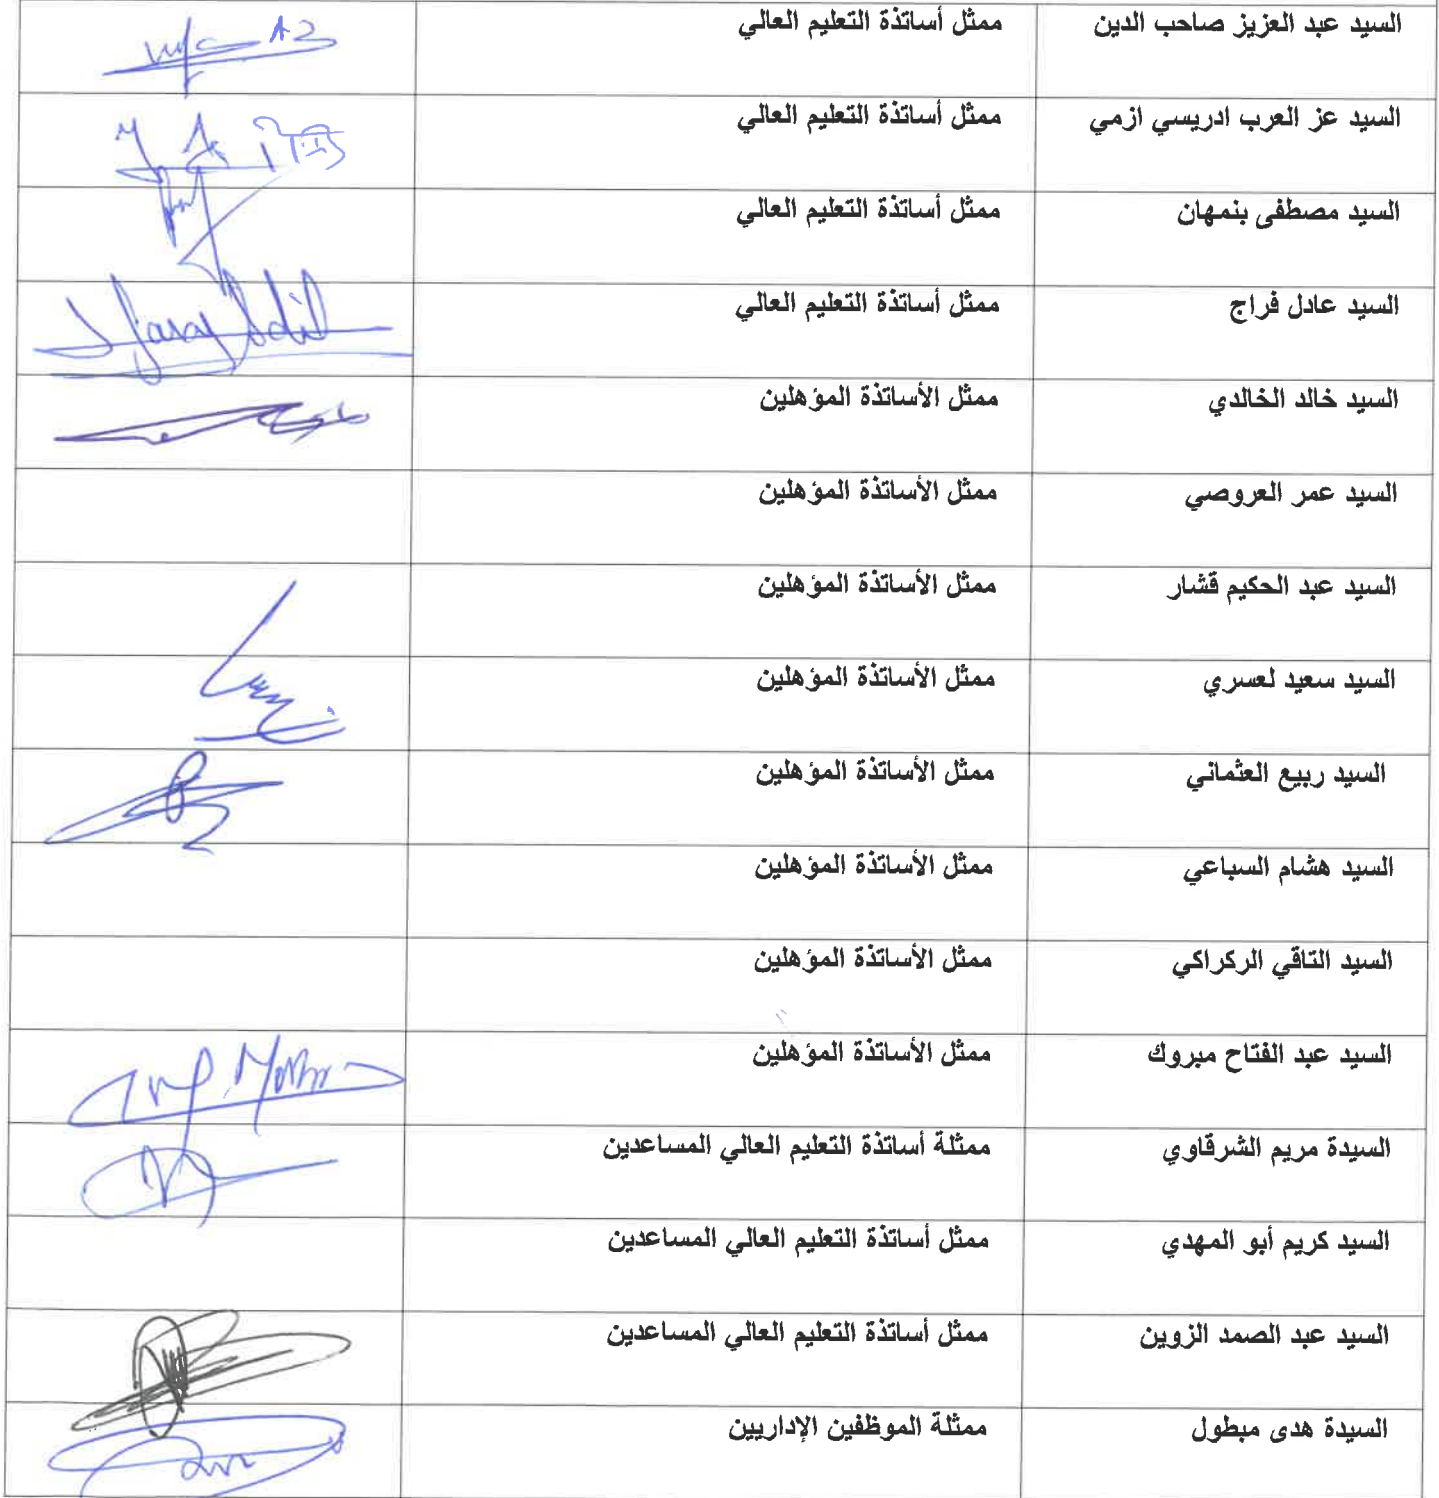 السيد عبد العزيز صاحب الدين ممثل أساتذة التعليم العالي
السيد عز العرب ادريسي ازمي ممثل أساتذة التعليم العالي
السيد مصطفى بنمهان ممثل أساتذة التعليم العالي
السيد عادل فراج ممثل أساتذة التعليم العالي
السيد خالد الخالدي ممثل الأساتذة المؤهلين
السيد عمر العروصي ممثل الأساتذة المؤهلين
السيد عبد الحكيم قشار ممثل الأساتذة المؤهلين
السيد سعيد لعسري ممثل الأساتذة المؤهلين
السيد ربيع العثماني ممثل الأساتذة المؤهلين
السيد هشام السباعي ممثل الأساتذة المؤهلين
السيد التاقي الركراكي ممثل الأساتذة المؤهلين
السيد عبد الفتاح مبروك ممثل الأساتذة المؤهلين
السيدة مريم الشرقاوي ممثلة أساتذة التعليم العالي المساعدين
السيد كريم أبو المهدي ممثل أساتذة التعليم العالي المساعدين
السيد عبد الصمد الزوين ممثل أساتذة التعليم العالي المساعدين
السيدة هدى مبطول ممثلة الموظفين الإداريين